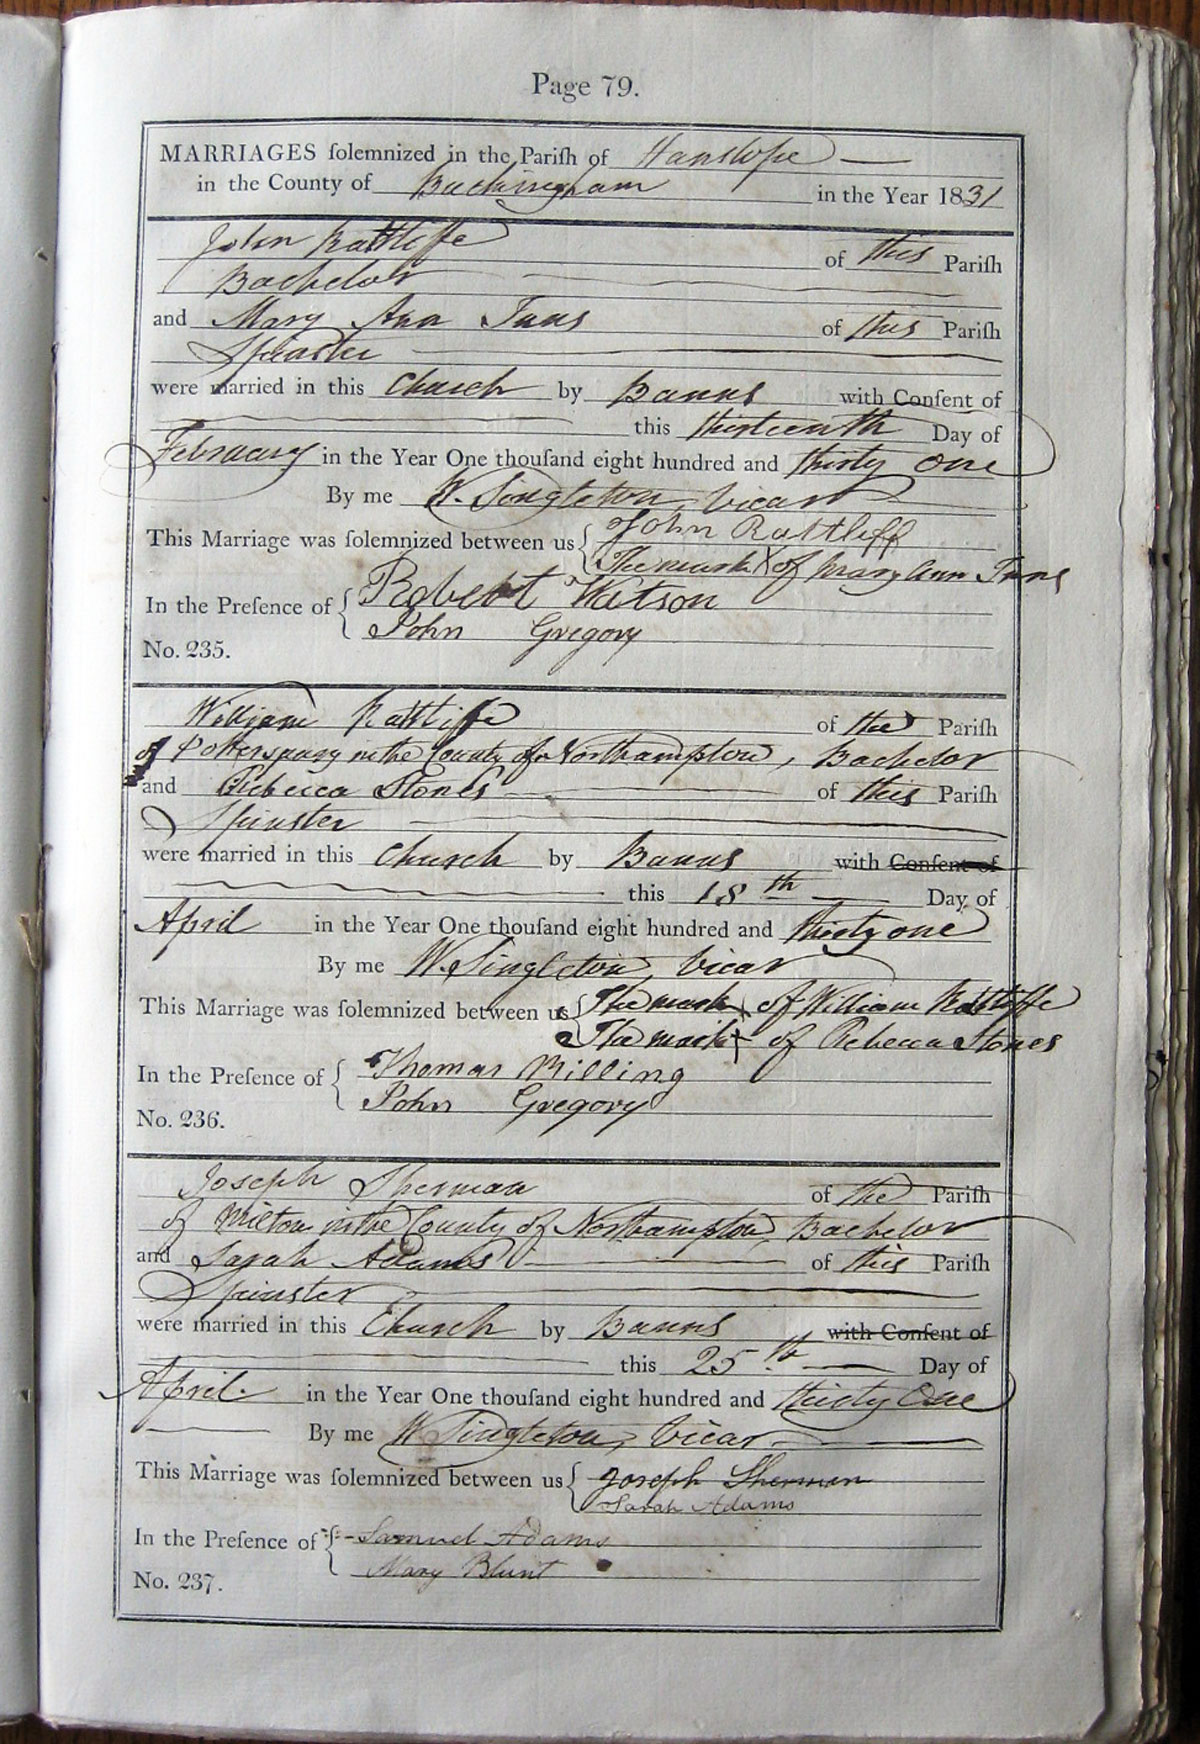 Page 79.
MARRIAGES ſolemnized in the Pariſh of Hanslope
in the County of Buckingham in the Year 1831
John Rattliffe of this Pariſh
Bachelor
and Mary Ann Inns of this Pariſh
Spinster
were married in this Church by Banns with Conſent of
this thirteenth Day of
February in the Year One thouſand eight hundred and thirty one
By me W. Singleton, Vicar
This Marriage was ſolemnized between us John Rattliff
The mark X of Mary Ann Inns
In the Preſence of Robert Watson
John Gregory
No. 235.
William Rattliffe of the Pariſh
of Potterspury in the County of Northampton, Bachelor
and Rebecca Stones of this Pariſh
Spinster
were married in this Church by Banns with Conſent of
this 18th Day of
April in the Year One thouſand eight hundred and thirty one
By me W. Singleton, Vicar
This Marriage was ſolemnized between us The mark X of William Rattliffe
The mark X of Rebecca Stones
In the Preſence of Thomas Milling
John Gregory
No. 236.
Joseph Sherman of the Pariſh
of Milton in the County of Northampton, Bachelor
and Sarah Adams of this Pariſh
Spinster
were married in this Church by Banns with Conſent of
this 25th Day of
April in the Year One thouſand eight hundred and thirty One
By me W Singleton, Vicar
This Marriage was ſolemnized between us Joseph Sherman
Sarah Adams
In the Preſence of Samuel Adams
Mary Blunt
No. 237.